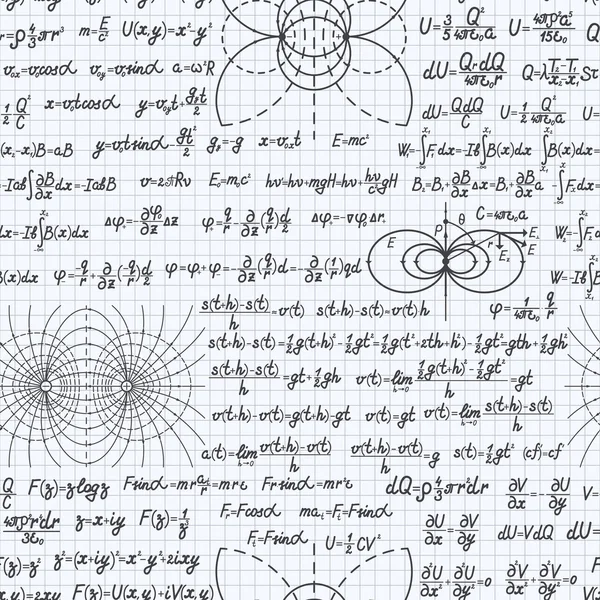 r=ρ4/3πr³ m=E/c² U(x,y)=x²-y² U=3/5 Q²/4πε₀a U=4πρ²a⁵/15ε₀
v₀ₓ=v₀cosα v₀ᵧ=v₀sinα a=ω²R dU=QrdQ/4πε₀r Q=λ(T₁-T₂)/(x₂-x₁)Sτ
1/2 Q²/C x=v₀tcosα y=v₀ᵧt+gᵧt²/2 dU=QdQ/C U=1/2 Q²/4πε₀a
(x₂-x₁)B=aB y=v₀tsinα-gt²/2 gᵧ=-g x=v₀ₓt E=mc²
-Ia∫∂B/∂x dx=-IabB v=2πRν E₀=m₀c² hν=hν+mgH=hν+hν/c² gH B₂=B₁+∂B/∂x Δx=B₁+∂B/∂x a
dx=-Ib∫B(x)dx Δφ₀=-∂φ₀/∂z Δz φ₀=q/r+∂/∂z(q/r)d/2 Δφ₀=-∇φ₀Δr C=4πε₀a
B(x)dx φ=-q/r+∂/∂z(-q/r)d/2 φ=φ₊+φ₋=-∂/∂z(q/r)d=-∂/∂z(1/r)qd
E P θ r E E
φ=1/4πε₀ q/r
s(t+h)-s(t)/h=v(t) s(t+h)-s(t)=v(t)h
s(t+h)-s(t)=1/2g(t+h)²-1/2gt²=1/2g(t²+2th+h²)-1/2gt²=gth+1/2gh²
s(t+h)-s(t)/h=gt+1/2gh v(t)=lim h→0 1/2g(t+h)²-1/2gt²/h=gt
v(t+h)-v(t)=g(t+h)-gt v(t)=gt v(t)=lim h→0 s(t+h)-s(t)/h
a(t)=lim h→0 v(t+h)-v(t)/h v(t+h)-v(t)/h=g s(t)=1/2gt² (cf)'=cf'
Q/C F(z)=zlogz Fsinα=mr aₜ/r=mrε Frsinα=mr²ε dQ=ρ4/3πr²dr ∂V/∂x=-∂U/∂y
4πρ²r⁴dr/3ε₀ z=x+iy F(z)=1/z Fᵣ=Fcosα maₜ=Fₜ=Fsinα ∂U/∂x=∂V/∂y dU=VdQ
F(z)=z² z²=(x+iy)²=x²-y²+2ixy Fₜ=Fsinα U=1/2CV²
F(z)=U(x,y)+iV(x,y) ∂²U/∂x²+∂²U/∂y²=0 ∂²V/∂x²+∂²V/∂y²=0